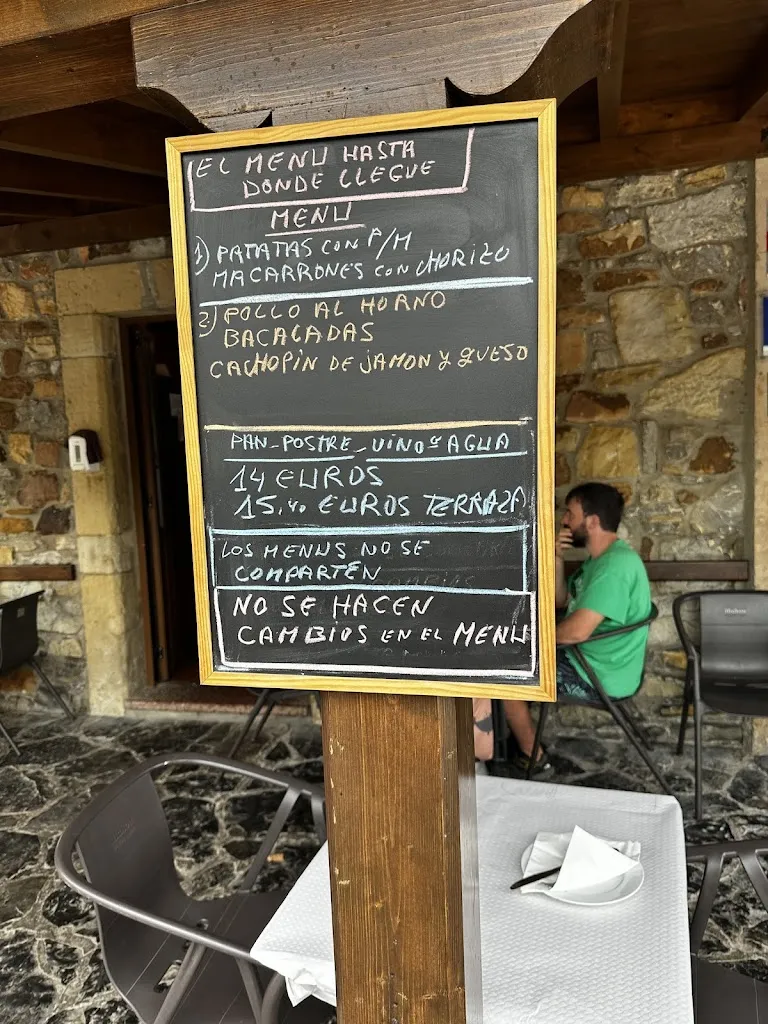 EL MENU HASTA
DONDE LLEGUE
MENU
1) PATATAS CON P/M
MACARRONES CON CHORIZO
2) POLLO AL HORNO
BACALADAS
CACHOPIN DE JAMON Y QUESO
PAN-POSTRE-VINO º AGUA
14 EUROS
15,40 EUROS TERRAZA
LOS MENUS NO SE
COMPARTEN
NO SE HACEN
CAMBIOS EN EL MENU